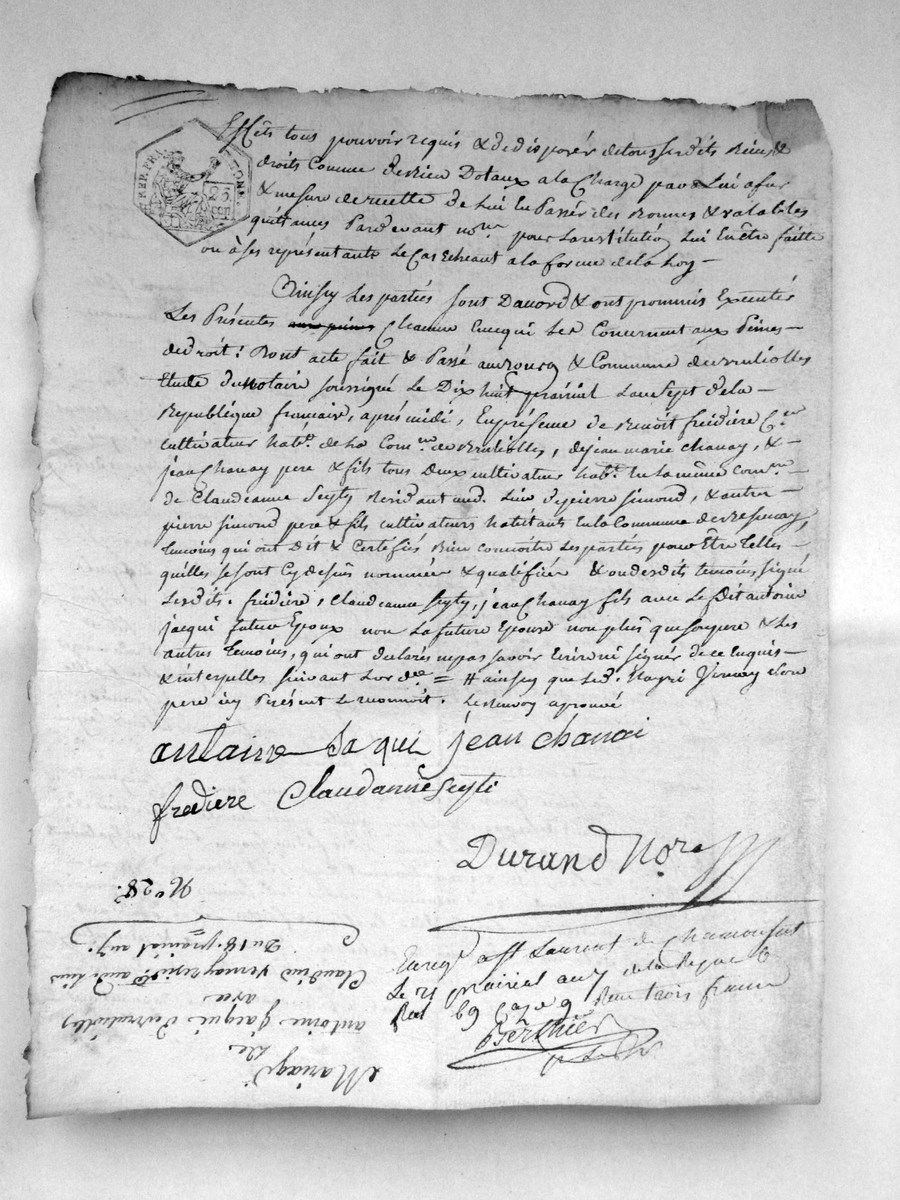 REP. FRA.
25
CEN
Effets tous pouvoir requis & de disposer de tous sesdits Biens &
droits Comme de Bien Dotaux a la Charge par Lui a fur
& mesure de recette de lui En Passér des Bonnes & valables
quittances Pardevant no.re pour La restitution Lui En être faitte
ou à ses représentants Le Cas Echeant a la forme de la Loy -
Ainsy Les parties sont D'accord & ont prommis Exécuter
Les Présentes Chacune Ence qui Les Concernent aux Peines -
de droit: Dont acte fait & Passé au Bourg & Commune de Brulliolles
Etude du Notaire soussigné Le Dix huit prairial L'an Sept de la -
République francaise, après midi, En présence de Benoit fredière C.en
cultivateur hab.t de La Com.ne de Brulliolles, de jean marie Chanay, &
jean Chanay pere & fils tous deux cultivateur hab.t En La même Com.ne
de Claudeanne Seyty Residant aud. Lieu de pierre simond, & autre -
pierre simond pere & fils cultivateurs habitants En La Commune de Bessenay,
temoins qui ont Dit & Certifiés Bien connoître Les parties pour Être telles -
quelles se sont Cy dessus nommées & qualifiées & ont lesdits temoins signé
Lesdits. fredière, Claudeanne Seyty, jean Chanay fils avec Le Dit antoine
jacqui futur Epoux non La future Epouse non plus que son pere & Les
autres temoins, qui ont declarés ne pas savoir Ecrire ni signer de ce Enquis -
& interpellés suivant L'or.ce = # ainsy que led. Vernay son
pere icy Présent Le Renvoy aprouvé
antoine Jaqui jean chanai
fredière Claudanne Seyti
Durand No.re
Enreg.é a S.t Laurent de Chamousset
Le 21 prairial an 7 de la Repub.
fol 69 Case 9 Reçu trois francs
Berthier
N.o 28.
Du 18. prairial an 7.
Claudine Vernay
avec
antoine Jacqui de Brulliolles
de
Mariage